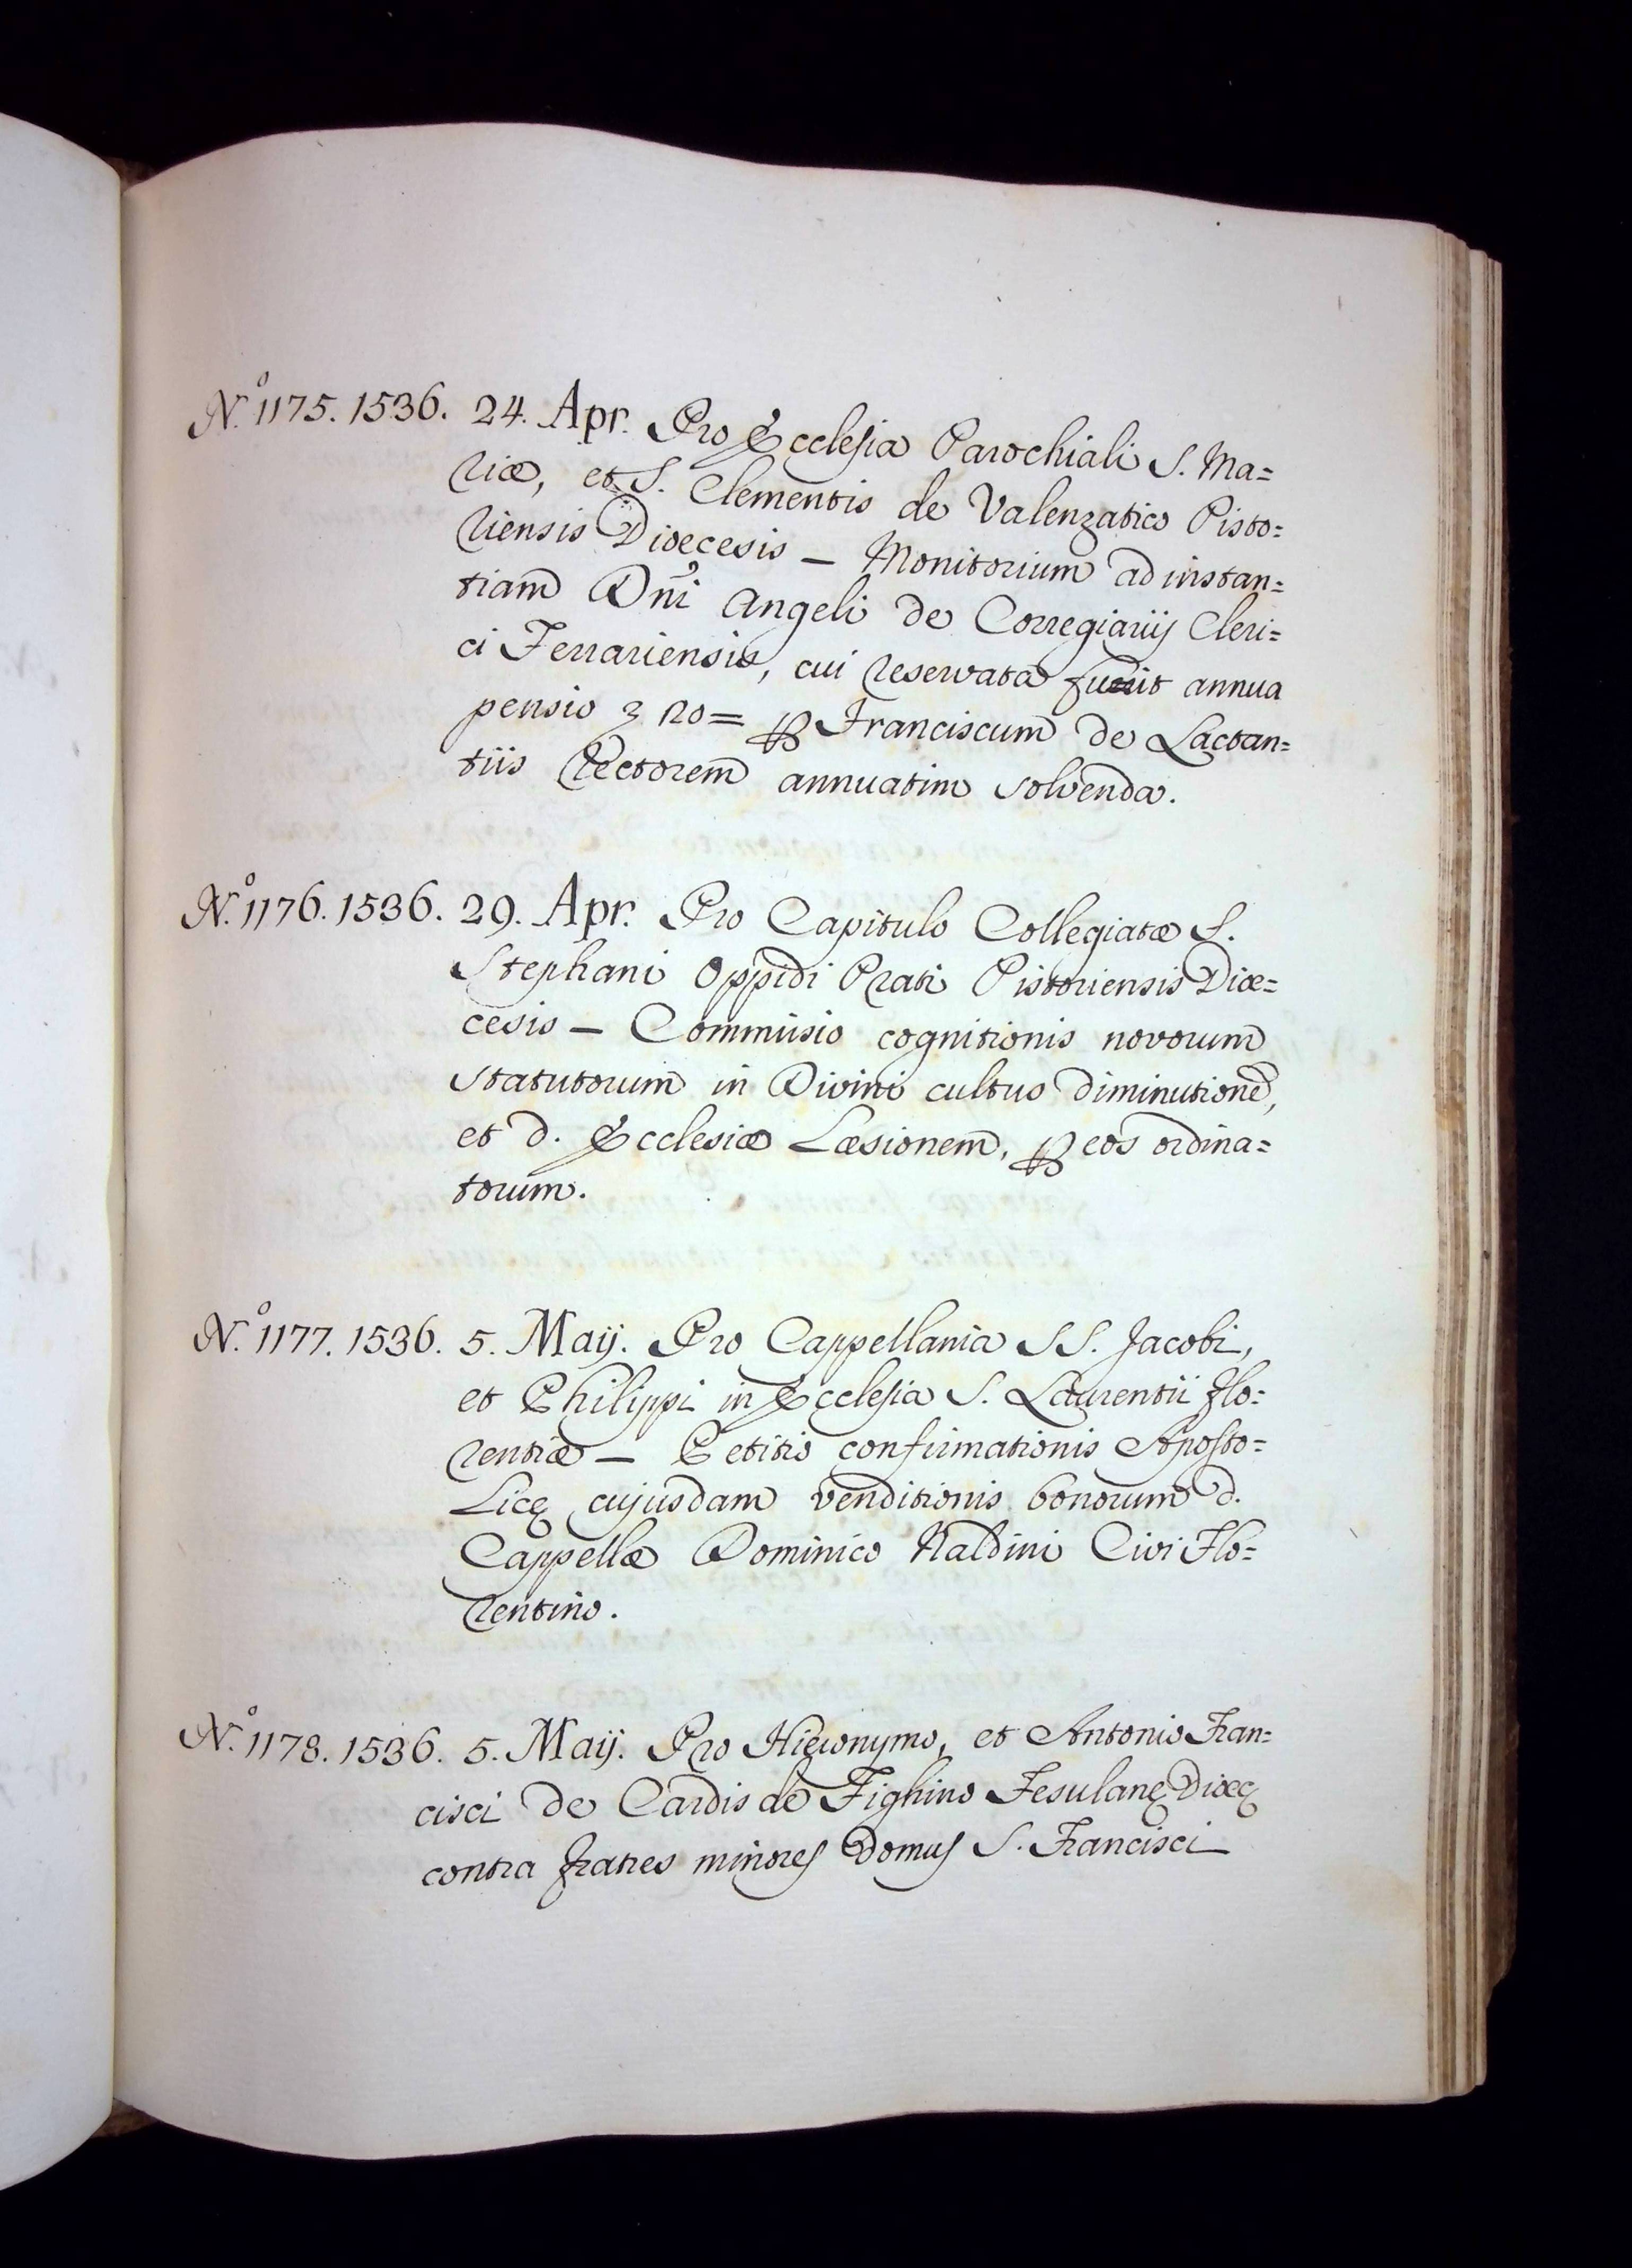 N.º 1175. 1536. 24. Apr. Pro Ecclesia Parochiali S. Ma=
riæ, et S. Clementis de Valenzatico Pisto=
riensis Diœcesis — Monitorium ad instan=
tiam Dñi Angeli de Corregiarijs Cleri=
ci Ferrariensis, cui reservata fuit annua
pensio 20= Franciscum de Lactan=
tiis Rectorem annuatim solvenda.
N.º 1176. 1536. 29. Apr. Pro Capitulo Collegiatæ S.
Stephani Oppidi Prati Pistoriensis Diœ=
cesis — Commissio cognitionis novorum
statutorum in Divini cultus diminutionẽ,
et d. Ecclesiæ Læsionem, ꝑ eos ordina=
torum.
N.º 1177. 1536. 5. Maij. Pro Cappellania SS. Jacobi,
et Philippi in Ecclesia S. Laurentii Flo=
rentiæ — Petitio confirmationis Aposto=
licę cujusdam venditionis bonorum d.
Cappellæ Dominico Naldini Civi Flo=
rentino.
N.º 1178. 1536. 5. Maij. Pro Hieronymo, et Antonio Fran=
cisci de Cardis de Fighino Fesulanę Diœcę
contra fratres minores Domus S. Francisci